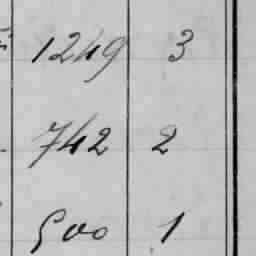 1249 3
742 2
500 1